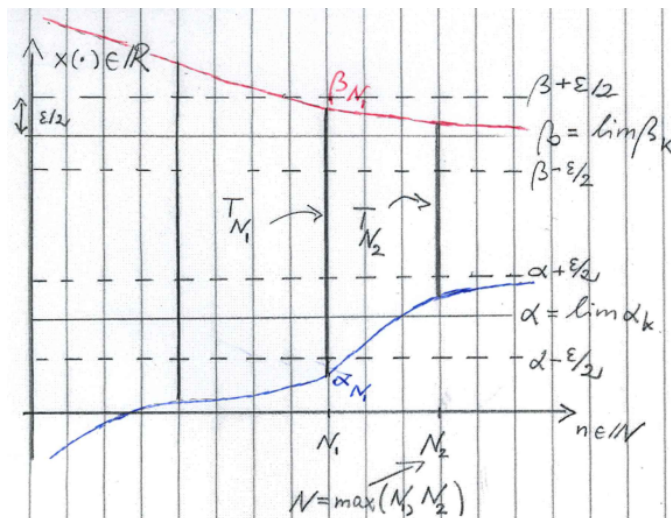 x(·) ∈ ℝ
β_{N₁}
β + ε/2
ε/2
β = lim β_k
β − ε/2
T_{N₁}
T_{N₂}
α + ε/2
α = lim α_k
α − ε/2
α_{N₁}
n ∈ ℕ
N₁
N₂
N = max(N₁, N₂)